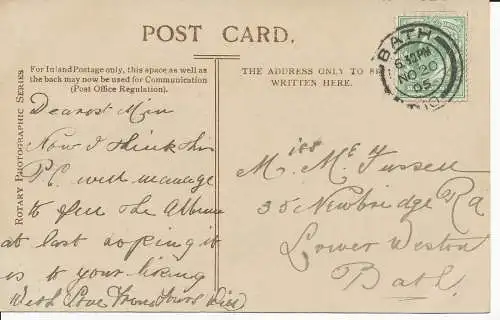 POST CARD.
For Inland Postage only, this space as well as
the back may now be used for Communication
(Post Office Regulation).
THE ADDRESS ONLY TO BE
WRITTEN HERE.
ROTARY PHOTOGRAPHIC SERIES
BATH
6 30 PM
NO 20
05
Dearest Min
Now I think this
P.C. will manage
to fill the Albume
at last hoping it
is to your liking
With Love from Yours Will
Miss M E Fussell
35 Newbridge Rd
Lower Weston
Bath.